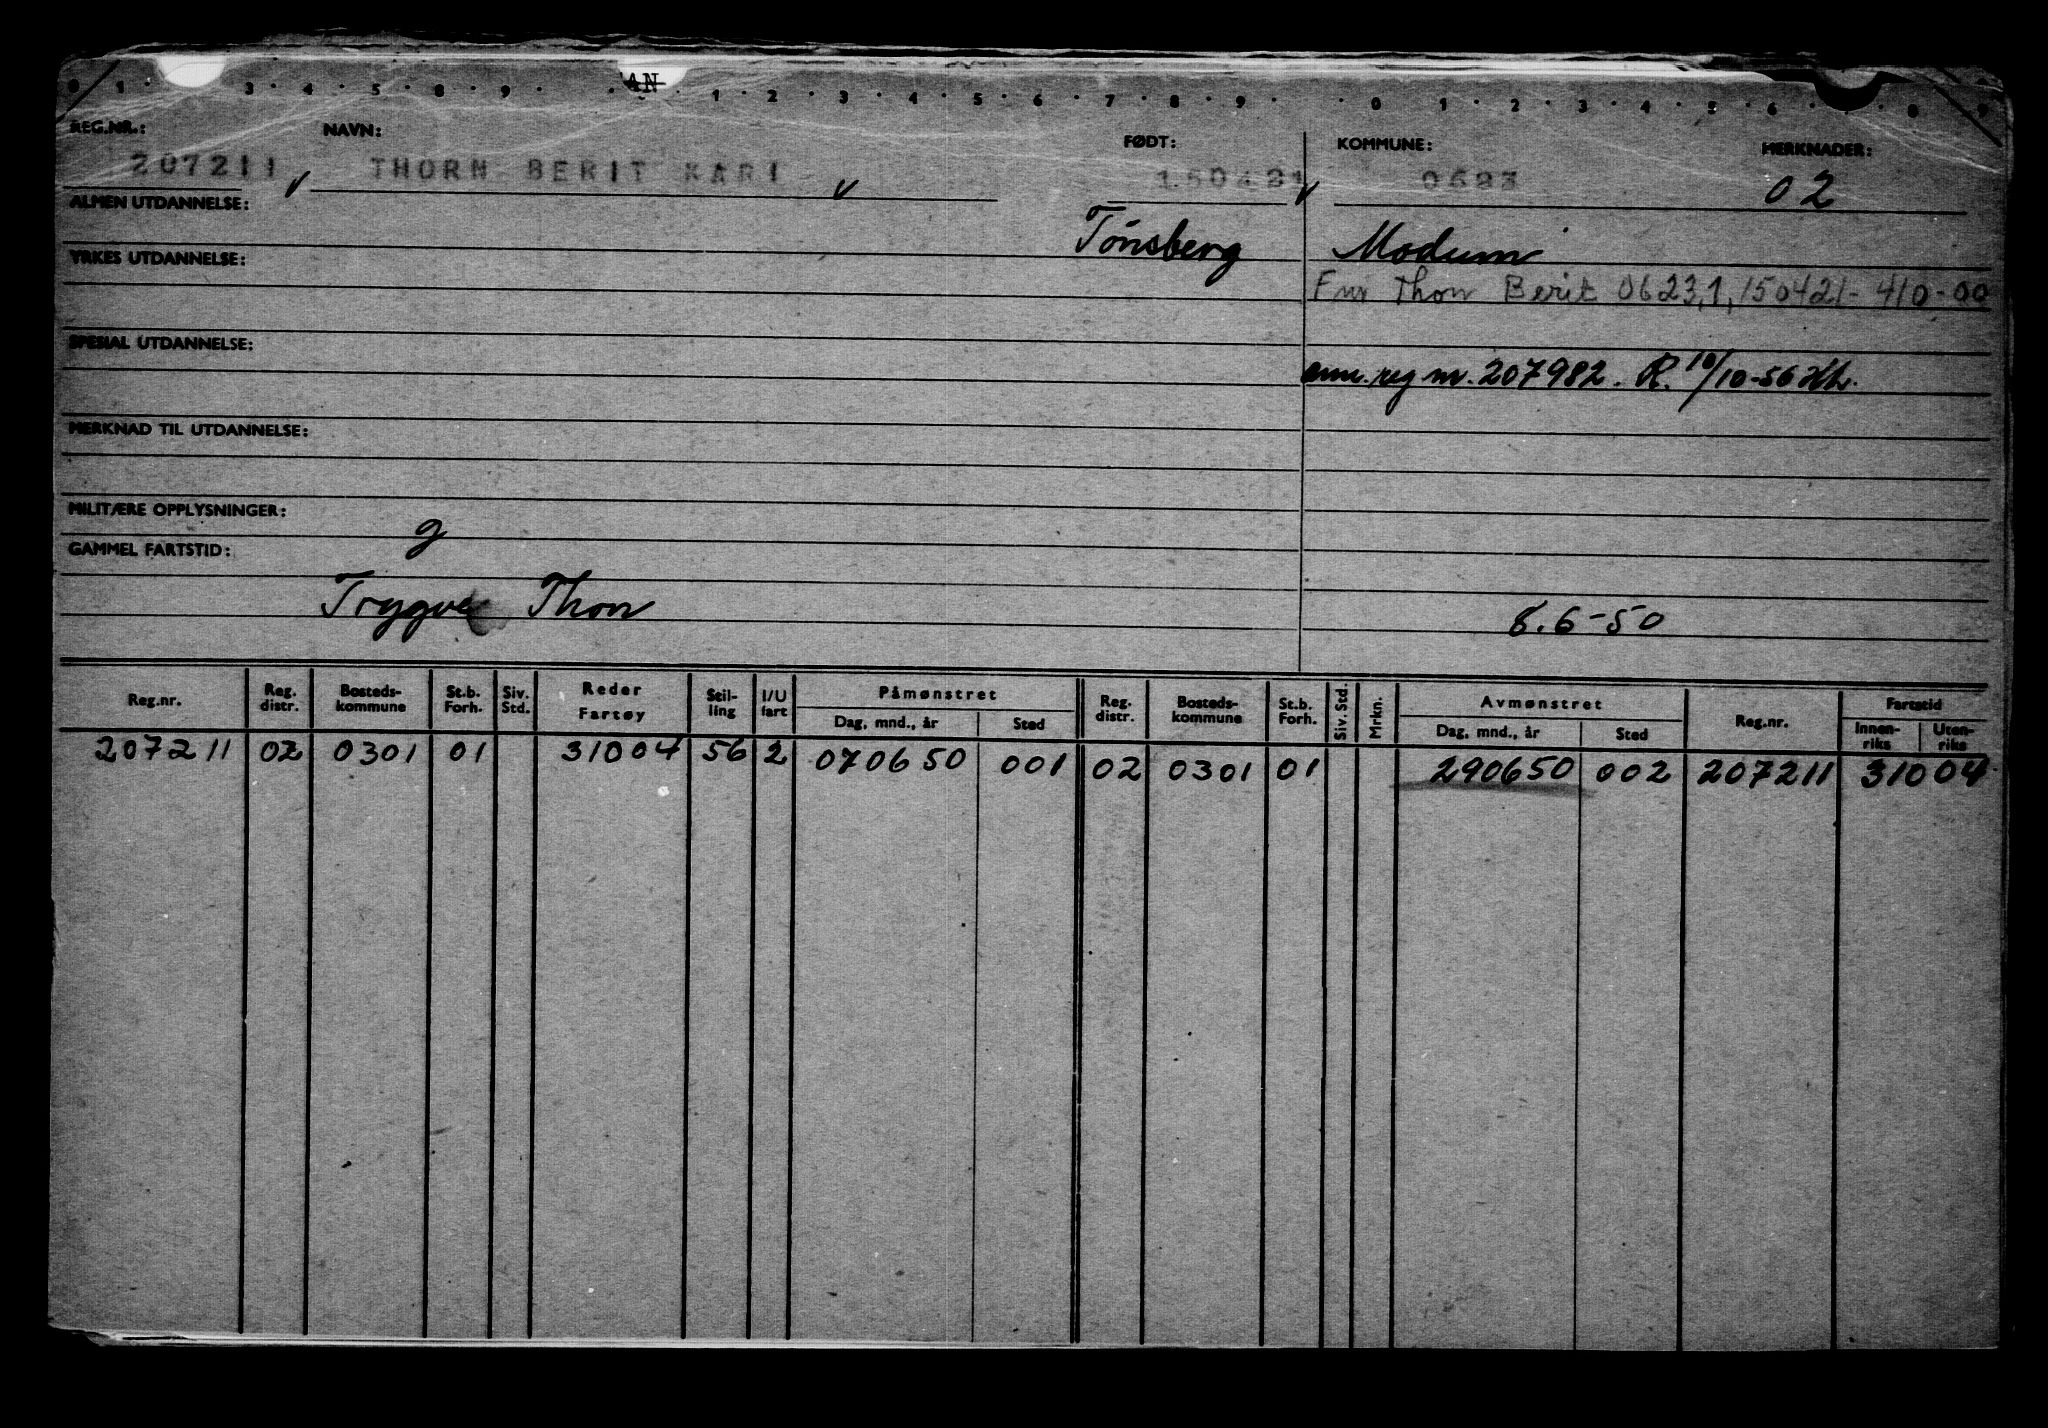 AN
0 1 · 3 · 4 · 5 · 8 · 9 · · 1 · 2 · 3 · 4 · 5 · 6 · 7 · 8 · 9 · · 0 · 1 · 2 · 3 · 4 · 5 · 6 · · 8 · 9
REG.NR.: NAVN: FØDT: KOMMUNE: MERKNADER:
207211 THORN BERIT KARI 150421 0623 02
ALMEN UTDANNELSE:
Tønsberg Modum
YRKES UTDANNELSE:
Fnr Thon Berit 0623,1,150421-410-00
SPESIAL UTDANNELSE:
ann. reg nr. 207982. R. 10/10-56
MERKNAD TIL UTDANNELSE:
MILITÆRE OPPLYSNINGER:
g
GAMMEL FARTSTID:
Trygve Thon 8.6-50
Reg.nr. Reg. distr. Bosteds-kommune St.b. Forh. Siv. Std. Reder Fartøy Stil-ling I/U fart Påmønstret Dag, mnd., år Sted Reg. distr. Bosteds-kommune St.b. Forh. Siv. Std. Mrkn. Avmønstret Dag, mnd., år Sted Reg.nr. Fartstid Innen-riks Uten-riks
207211 02 0301 01 31004 56 2 070650 001 02 0301 01 290650 002 207211 31004